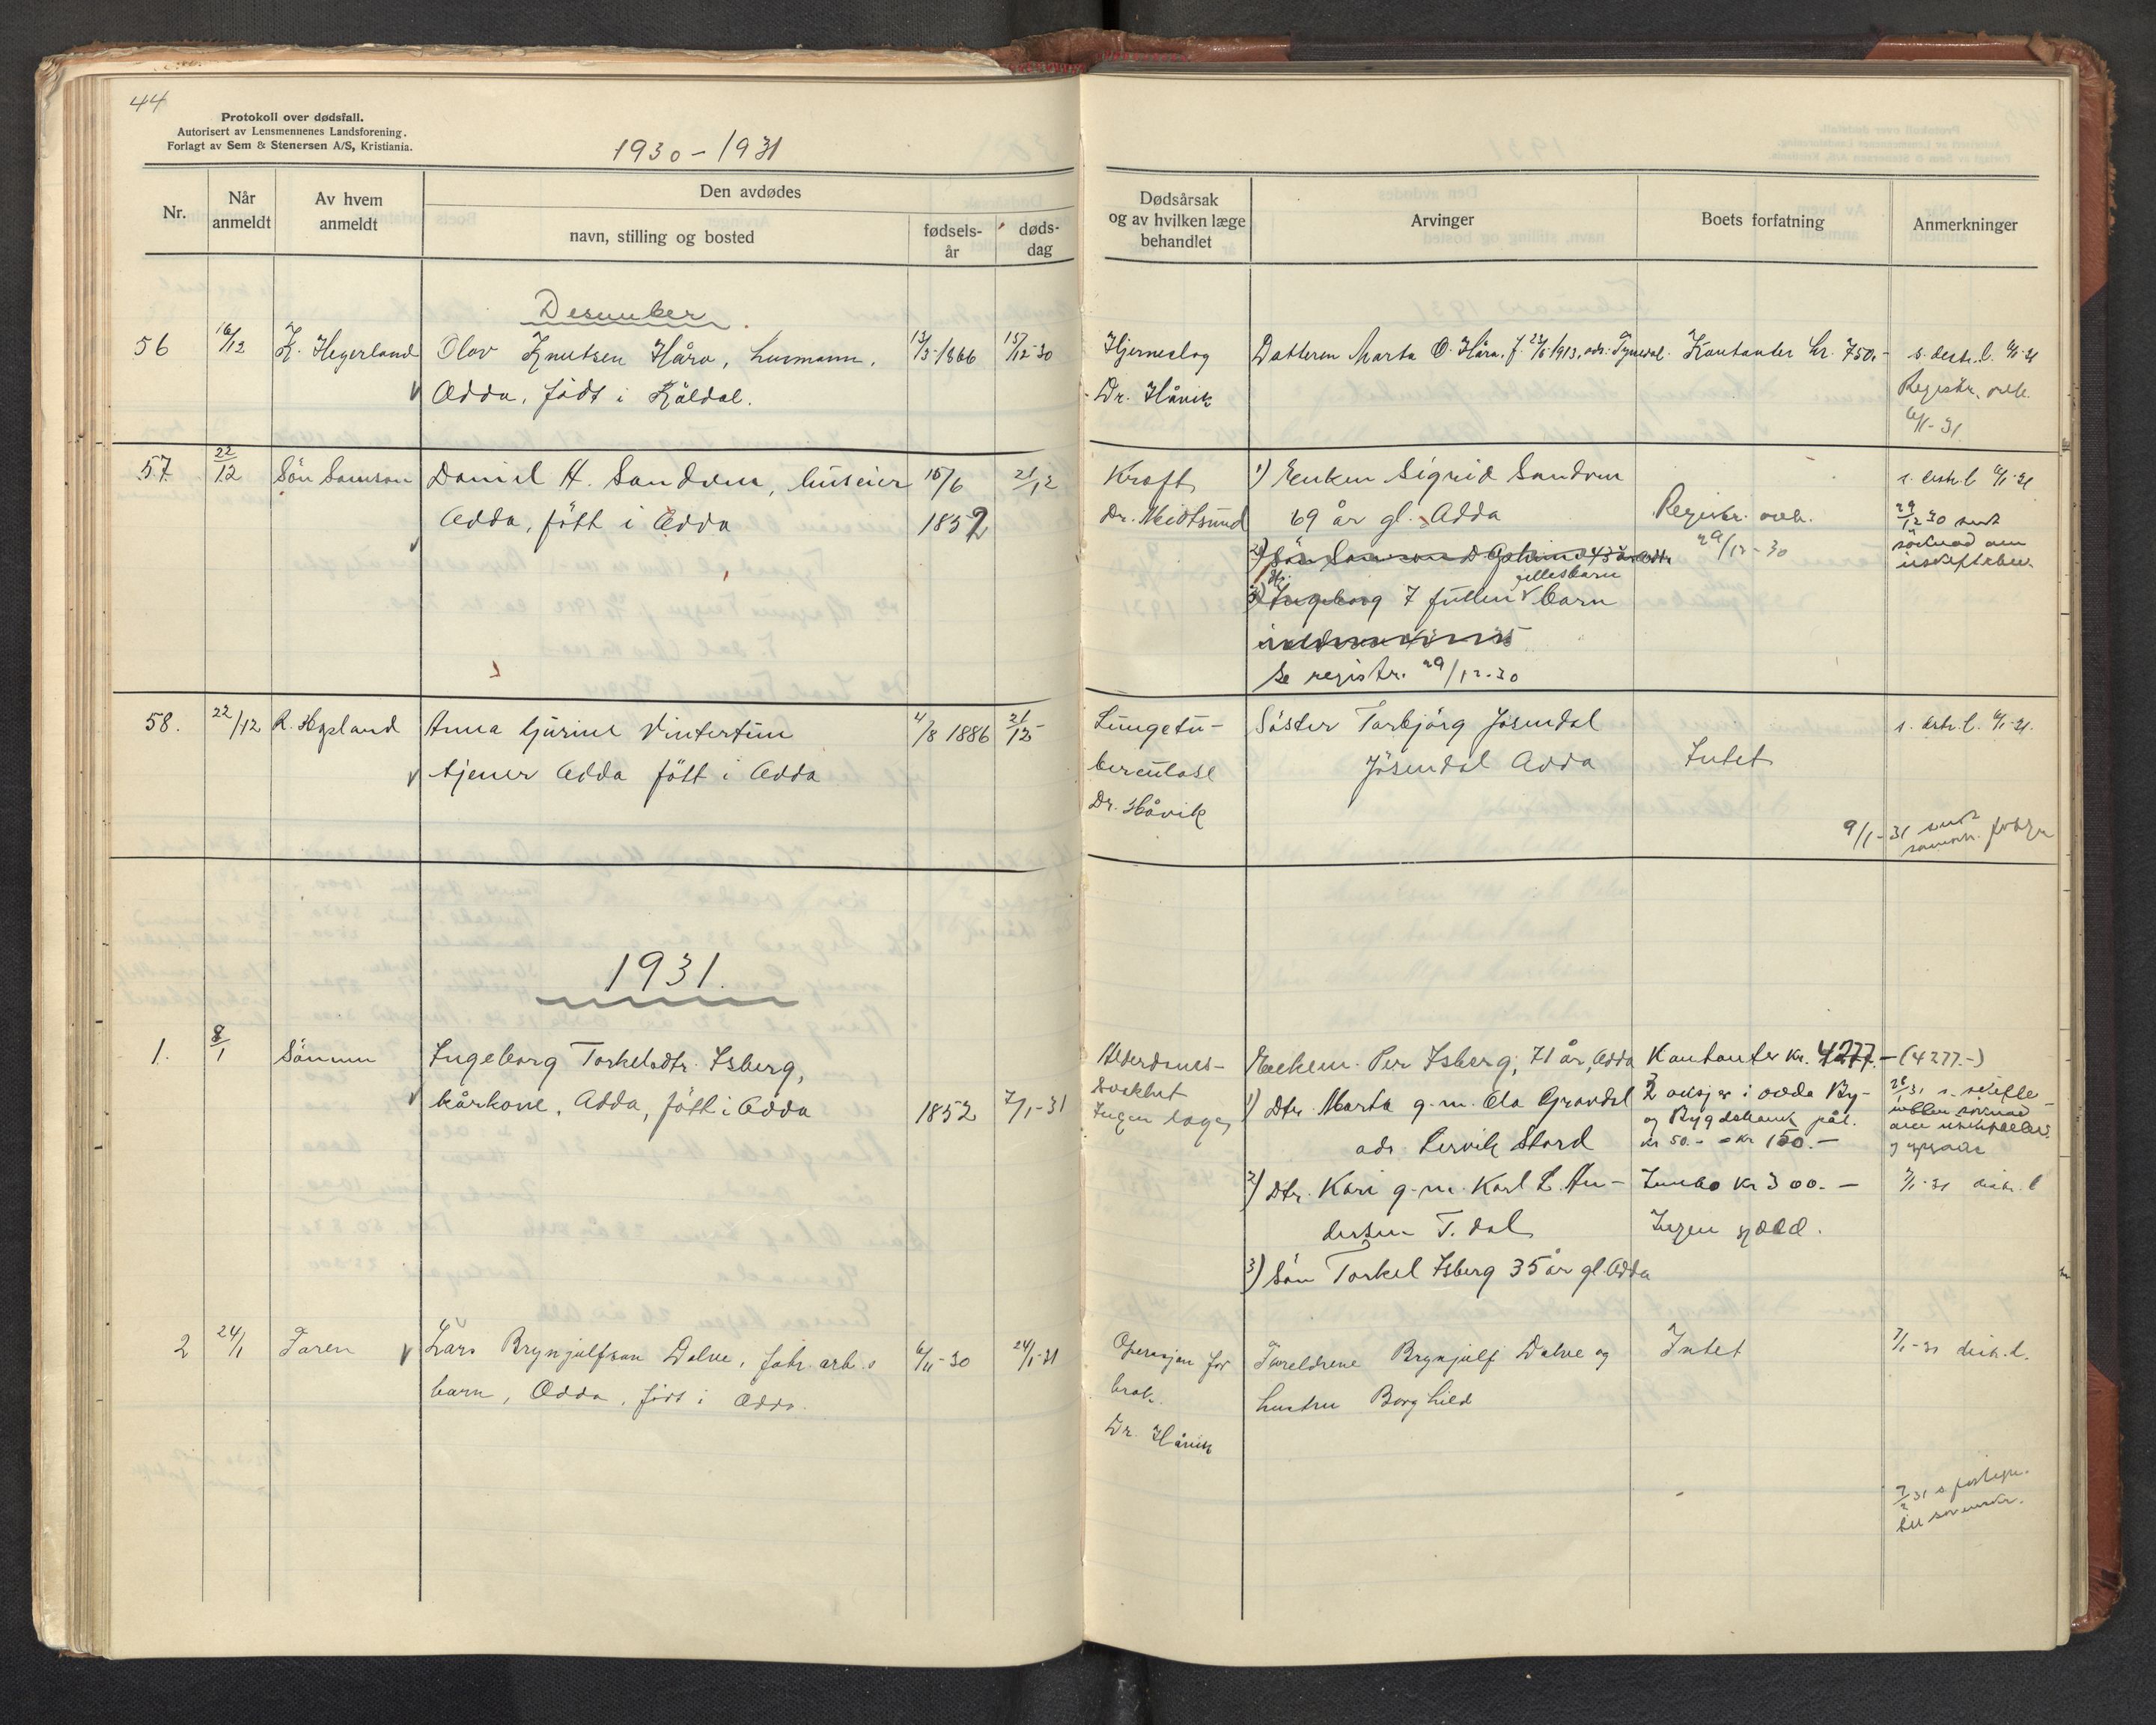 44
Protokoll over dødsfall.
Autorisert av Lensmennenes Landsforening.
Forlagt av Sem & Stenersen A/S, Kristiania.
1930 - 1931
Nr.
Når anmeldt
Av hvem anmeldt
Den avdødes
navn, stilling og bosted
fødsels-år
døds-dag
Dødsårsak og av hvilken læge behandlet
Arvinger
Boets forfatning
Anmerkninger
Desember
56 16/12 K. Hegerland Olav Knutsen Håra, husmann, 13/5-1866 15/12-30
Odda, født i Röldal.
Hjerneslag
Dr. Håvik
Datteren Marta O. Håra, f. 1913, adr. Tyssedal. Kontanter kr. 750.-
Registr. avh.
6/1-31
57. 22/12 Sön Samson Daniel H. Sandven, huseier 15/6 21/12
Odda, fött i Odda 1852
Kreft
Dr. Meidtsund
1) Enken Sigrid Sandven
69 år gl. Odda
7 fullm barn
gillesbarn
Se registr. 29/12-30
Registr. avh.
29/12-30
29/12 30 sendt
58. 22/12 R. Hopland Anna Gurine Vintertun 4/8 1886 21/12-
tjener Odda fött i Odda
Lungetu-
berculose
Dr. Håvik
Söster Torbjörg Jösendal
Jösendal Odda
Intet
9/1-31 sendt
1931.
1. 8/1 Sönnen Ingeborg Torkelsdtr. Isberg,
kårkone, Odda, fött i Odda 1852 7/1-31
Alderdoms-
svakhet
Ingen læge
Enkem. Per Isberg, 71 år, Odda
1) Dtr. Marta g.m. Ola Grovdal
adr. Lervik Stord
2) Dtr. Kari g.m. Karl L. An-
dersen T.dal
3) Sön Torkel Isberg 35 år gl. Odda
Kontanter kr. 4277.-
aksjer i Odda By-
og Bygdebank pål.
kr 50.- = kr 150.-
Innbo kr 300.-
Ingen gjæld.
(4277.-)
2 24/1 Faren Lars Brynjulfson Dalve, fabr. arb.s 6/11-30 24/1-31
barn, Odda, født i Odda.
Operasjon for
brok.
Dr. Håvik
Foreldrene Brynjulf Dalve og
hustru Borghild
Intet